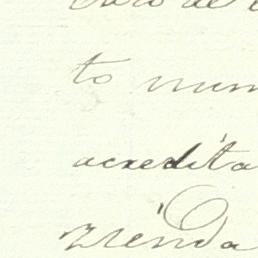 to num
acredita
zienda